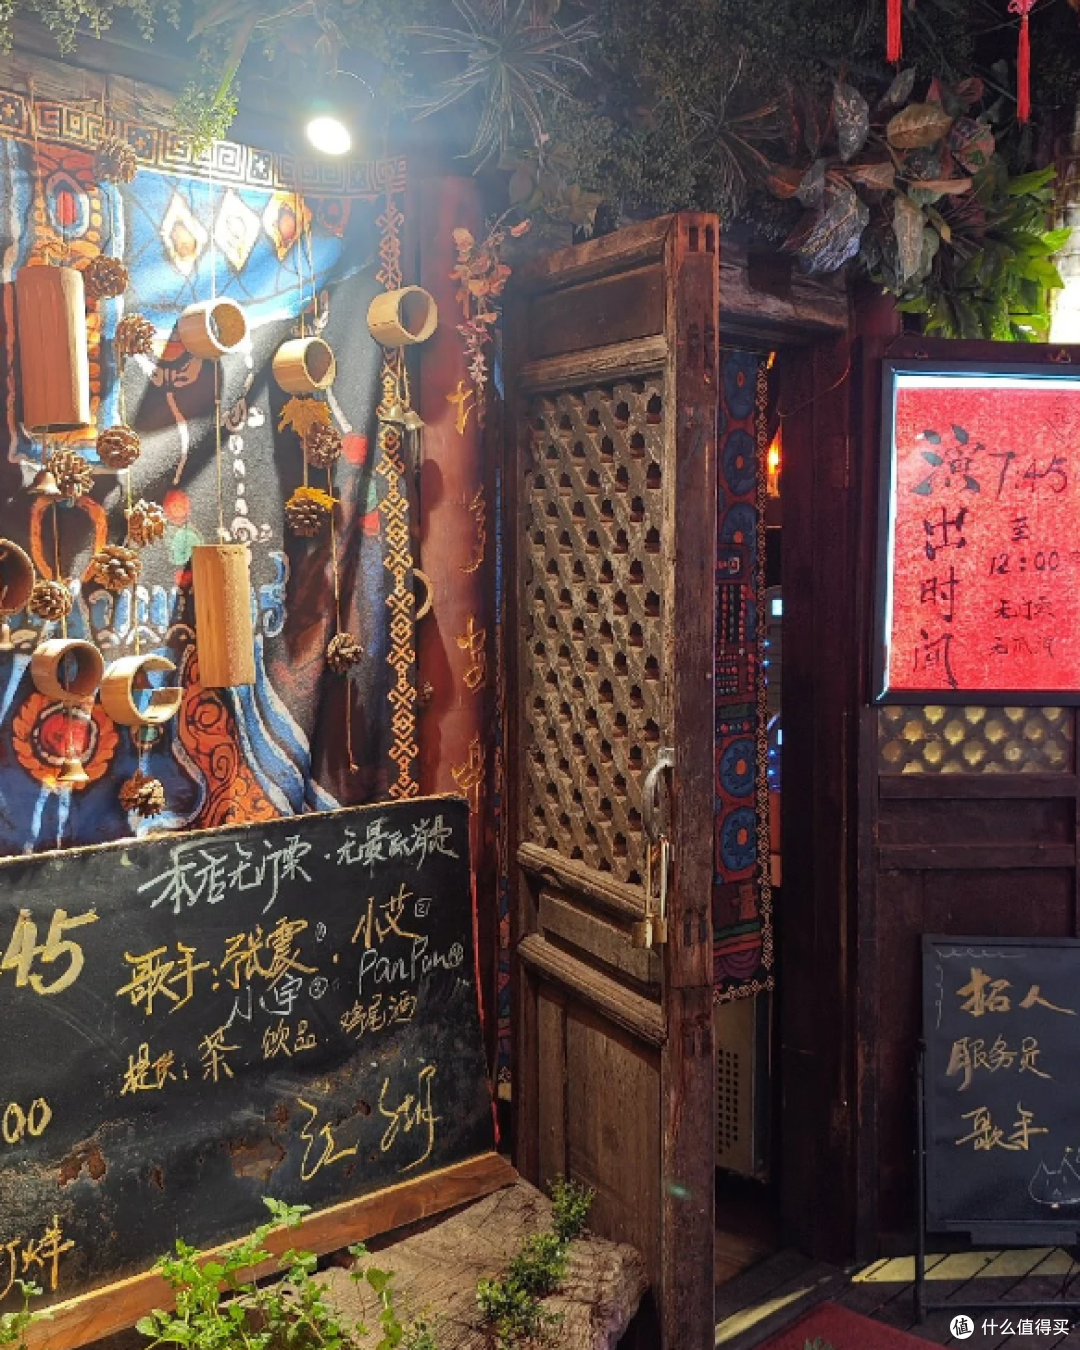 本店无门票·无最低消
:45
歌手:张震① 小艾②
小宇③ PanPun④
提供:茶 饮品 鸡尾酒
:00
江湖
打烊
演出时间
7:45
至
12:00
招人
服务员
歌手
值 什么值得买